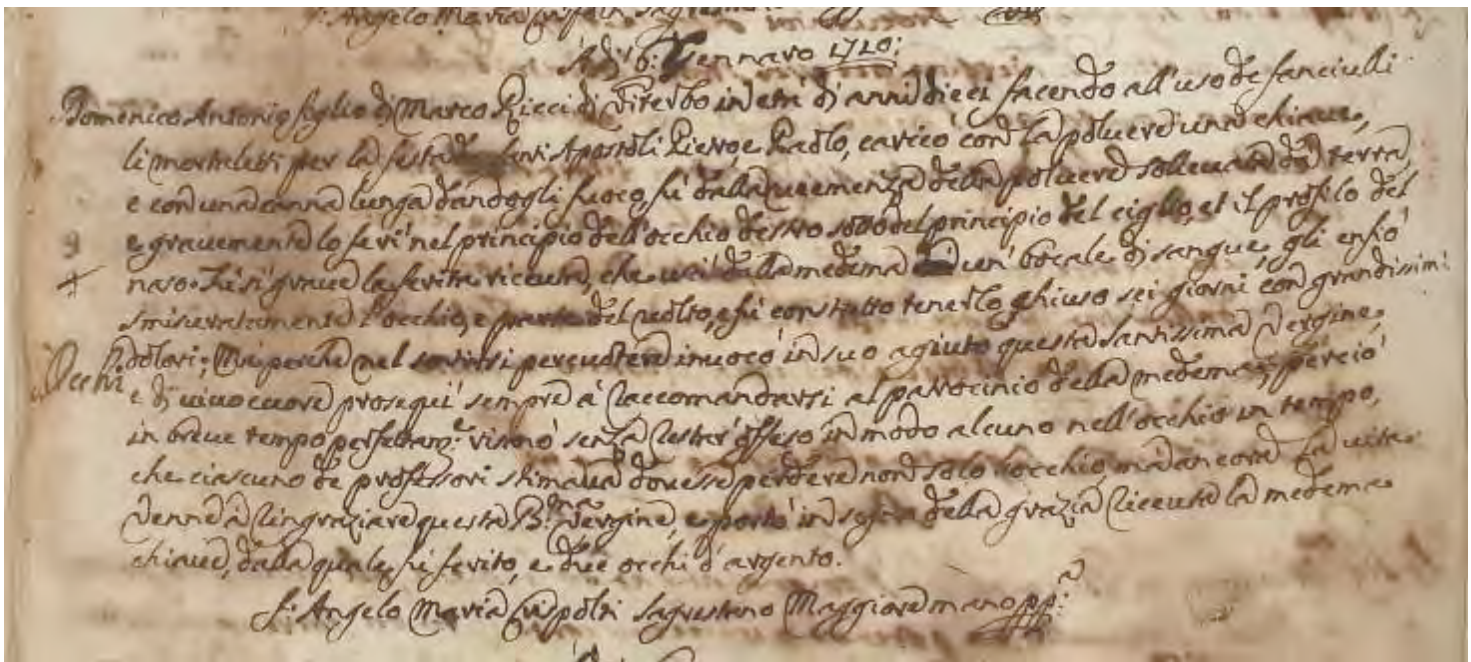 f. Angelo Maria
A dì 6: Gennaro 1710:
Domenico Antonio figlio di Marco Ricci di Viterbo in età di anni dieci facendo all'uso de fanciulli
li mortaletti per la festa de Santi Apostoli Pietro, e Paolo, caricò con la poluere una chiaue,
e con una canna lunga dandogli fuoco, fù dalla ueemenza della poluere solleuata da terra,
e grauemente lo ferì nel principio dell'occhio destro sotto del principio del ciglio, et il profilo del
naso. Fù sì graue la ferita riceuuta, che uscì dalla medema un bocale di sangue, gli enfiò
smisuratamente l'occhio, e parte del uolto, e fù constretto tenerlo chiuso sei giorni con grandissimi
Occhi
dolori; Mà perche nel sentirsi percuotere inuocò in suo agiuto questa Santissima Vergine,
e di uiuo cuore proseguì sempre à raccomandarsi al patrocinio della medema; perciò
in breue tempo perfettamte risanò senza restar offeso in modo alcuno nell'occhio in tempo,
che ciascuno de professori stimaua douesse perdere non solo l'occhio, mà ancora la uita.
Venne à ringraziare questa Bma Vergine, e portò in segno della grazia riceuuta la medema
chiaue, dalla quale fù ferito, e due occhi d'argento.
f. Angelo Maria Crispolti Sagrestano Maggiore mano ppa